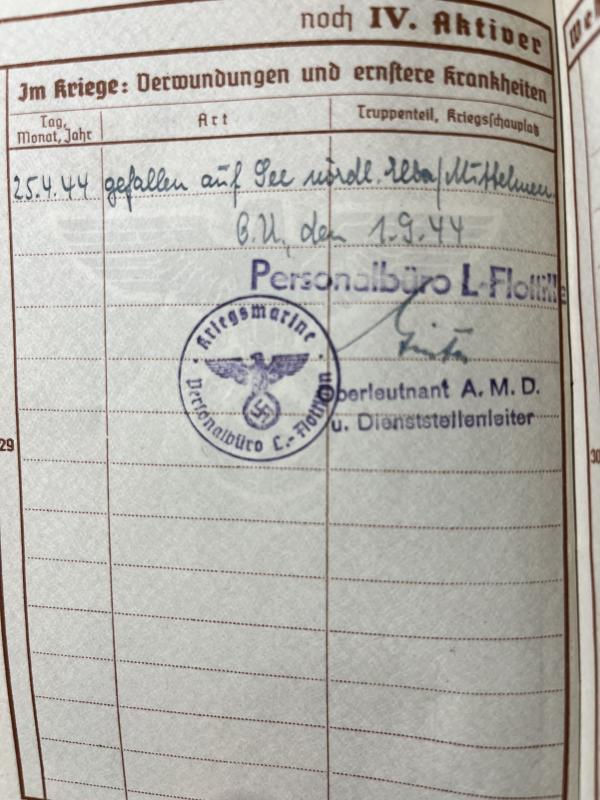 noch IV. Aktiver
Im Kriege: Verwundungen und ernstere Krankheiten
Tag, Monat, Jahr
Art
Truppenteil, Kriegsschauplatz
25.4.44 gefallen auf See nördl. Elba/Mittelmeer.
O.U., den 1.9.44
Personalbüro L-Flottille
Kriegsmarine
Personalbüro L.-Flottillen
Oberleutnant A. M. D.
u. Dienststellenleiter
29
30